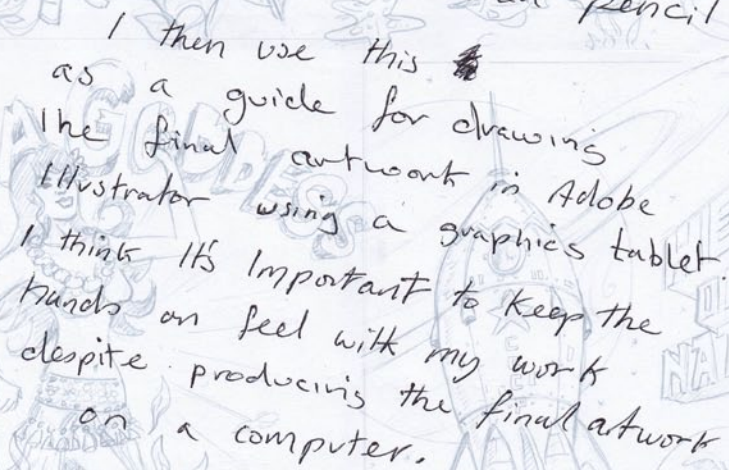 pencil
I then use this
as a guide for drawing
the final artwork in Adobe
Illustrator using a graphics tablet.
I think It's Important to keep the
hands on feel with my work
despite producing the final artwork
on a computer.
GODDESS